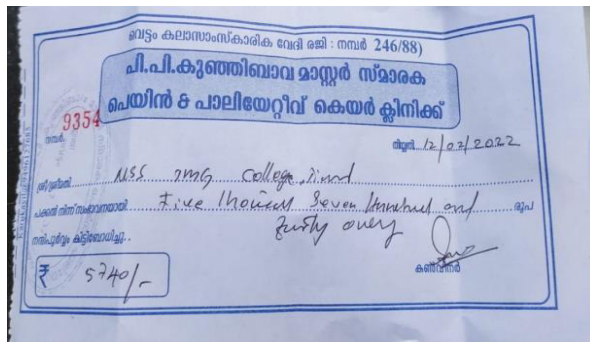 വെട്ടം കലാസാംസ്കാരിക വേദി രജി : നമ്പർ 246/88)
പി.പി.കുഞ്ഞിബാവ മാസ്റ്റർ സ്മാരക
പെയിൻ & പാലിയേറ്റീവ് കെയർ ക്ലിനിക്ക്
നമ്പർ. 9354
തിയ്യതി 12/02/2022
ശ്രീ/ശ്രീമതി NSS TMG College, Tirur
പക്കൽ നിന്ന് സംഭാവനയായി Five Thousand Seven Hundred and രൂപ
നന്ദിപൂർവ്വം കിട്ടിബോധിച്ചു.. only
₹ 5740/-
കൺവീനർ